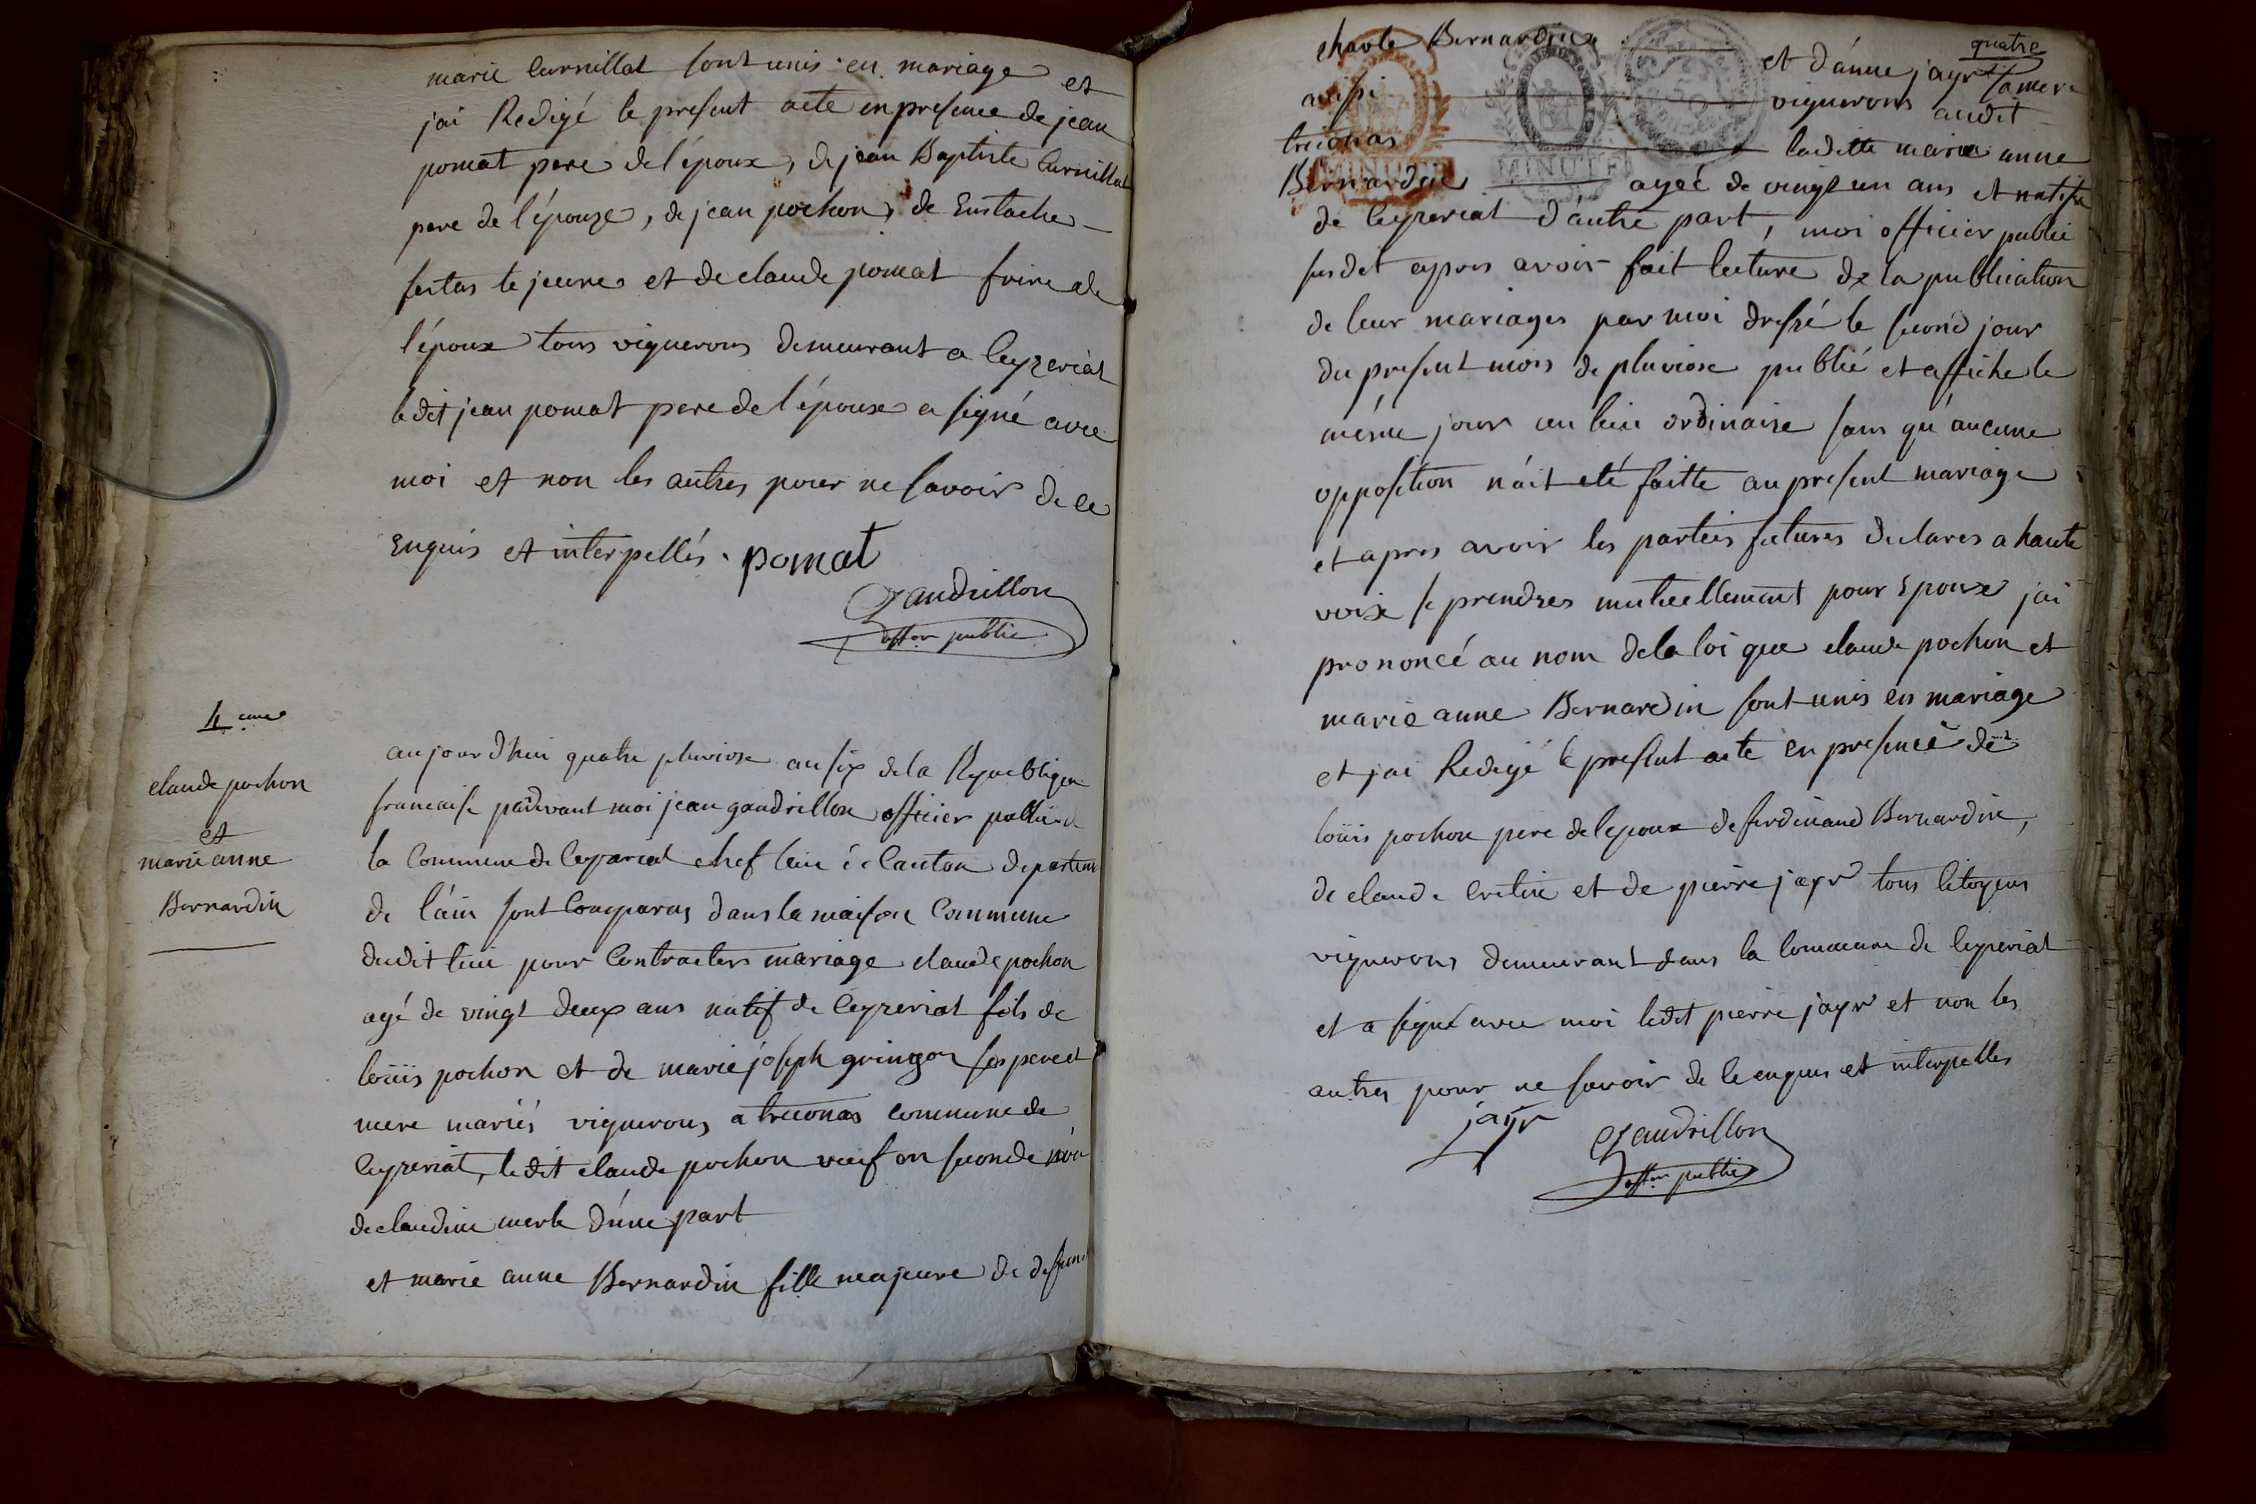 marie Curnillat sont unis en mariage et
jai Redigé le present acte en presence de jean
pomat pere de l'époux, de jean Baptiste Curnillat
pere de l'épouze, de jean pochon, de Eustache
festas le jeune et de claude pomat frere de
l'époux tous vignerons demeurant a Ceyzeriat
ledit jean pomat pere de l'époux a signé avec
moi et non les autres pour ne savoir de ce
Enquis et interpellés. pomat
Gaudrillon
offer public
4 eme
claude pochon
et
marie anne
Bernardin
aujourdhui quatre pluviose an six de la Republique
francaise pardevant moi jean gaudrillon officier public de
la Commune de Ceyzeriat chef lieu de Canton departem
de l'ain sont Comparus dans la maison Commune
dudit lieu pour Contracter mariage claude pochon
agé de vingt deux ans natif de Ceyzeriat fils de
loüis pochon et de marie joseph gringoz ses pere et
mere mariés vignerons a treconas Commune de
Ceyzeriat, ledit claude pochon veuf en seconde
de claudine merle d'une part
et marie anne Bernardin fille majeure de defunt
quatre
charle Bernardin et d'anne jayr sa mere
aussi vignerons audit
treconas laditte marie anne
Bernardin ageé de vingt un ans et native
de Ceyzeriat d'autre part, moi officier public
susdit apres avoir fait lecture de la publication
de leur mariages par moi dressé le second jour
du present mois de pluviose publié et affiche le
méme jour au lieu ordinaire sans qu'aucune
opposition n'ait eté faitte au present mariage
et apres avoir les parties futures declares a haute
voix se prendres mutuellement pour Epoux jai
prononcé au nom de la loi que claude pochon et
marie anne Bernardin sont unis en mariage
et jai Redigé le present acte en presence de
loüis pochon pere de lepoux de ferdinand Bernardin,
de claude Cretin et de pierre jayr tous Citoyens
vignerons demeurant dans la Commune de Ceyzeriat
et a signé avec moi ledit pierre jayr et non les
autres pour ne savoir de ce enquis et interpelles
jayr
Gaudrillon
offer public
MINUTE
MINUTE